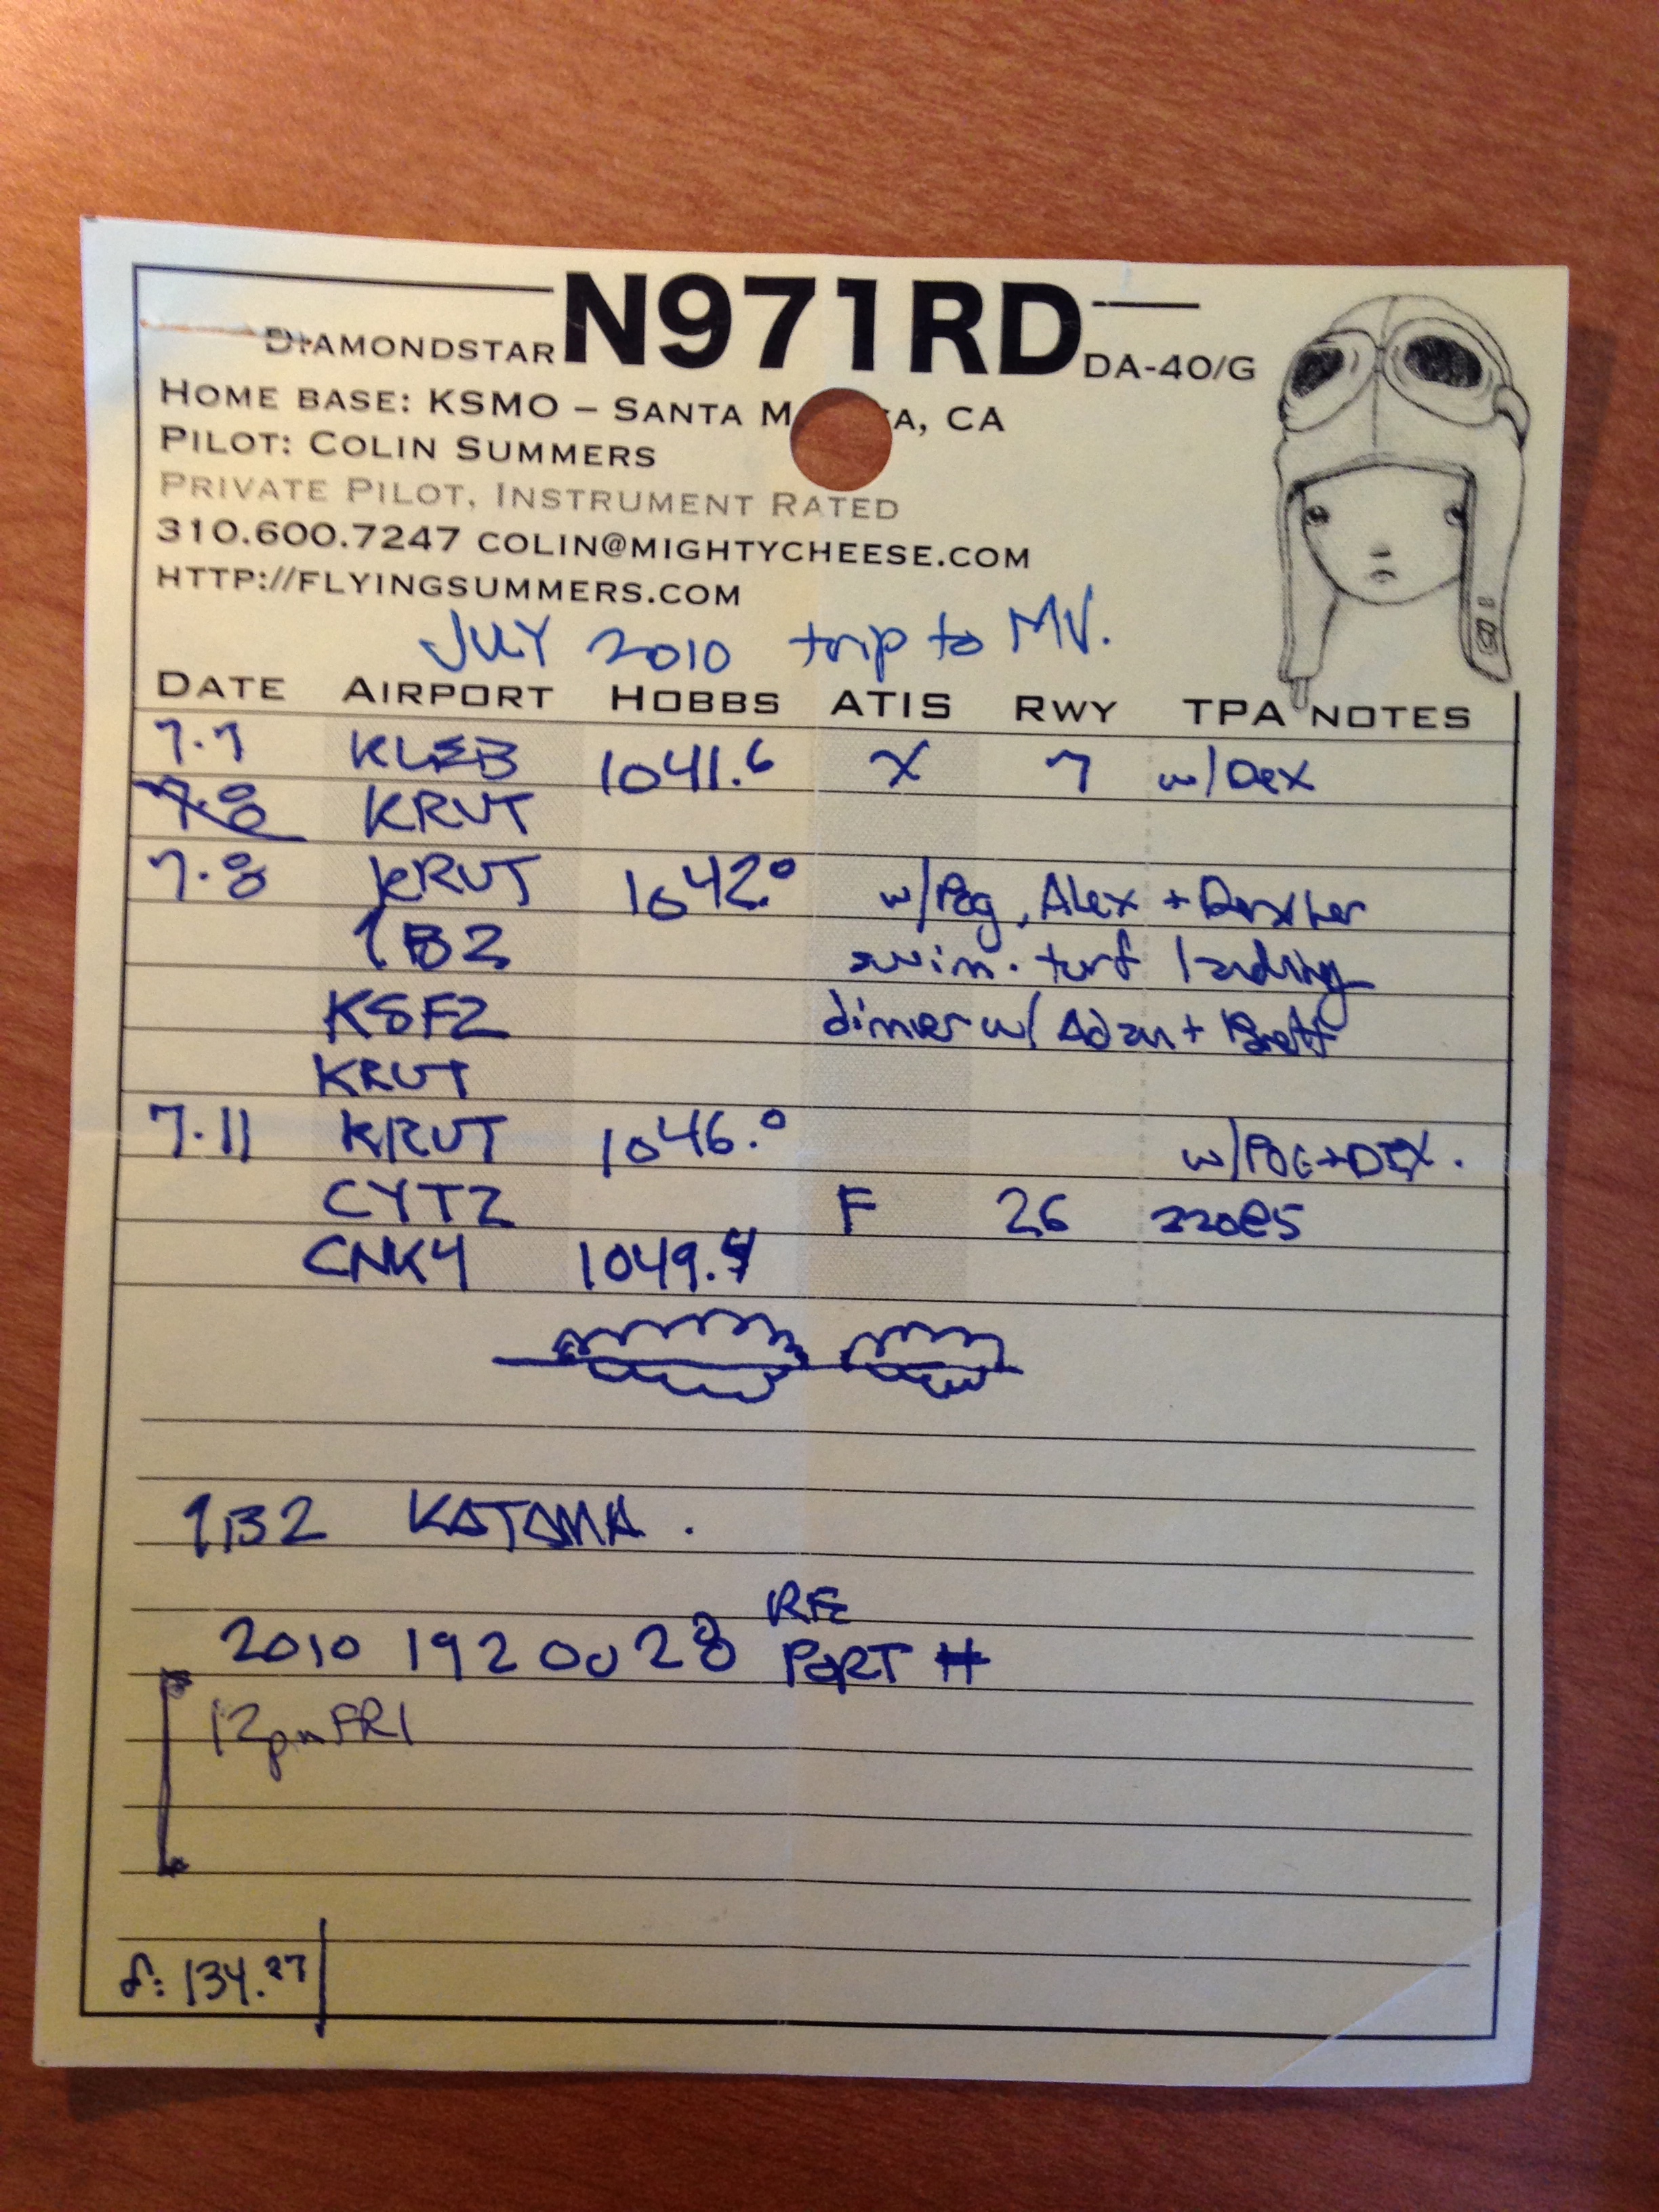 DIAMONDSTAR N971RD DA-40/G
HOME BASE: KSMO – SANTA M CA, CA
PILOT: COLIN SUMMERS
PRIVATE PILOT, INSTRUMENT RATED
310.600.7247 COLIN@MIGHTYCHEESE.COM
HTTP://FLYINGSUMMERS.COM
JULY 2010 trip to MV.
DATE AIRPORT HOBBS ATIS RWY TPA NOTES
7.7 KLEB 1041.6 X 7 w/Dex
7.8 KRUT
7.8 KRUT 1042.0 w/Pog, Alex + Dexter
1B2 swim. turf landing
KSFZ dinner w/ Adam + Brett
KRUT
7.11 KRUT 1046.0 w/POG+DEX.
CYTZ F 26 220@5
CNK4 1049.4
1B2 KATAMA.
2010 192 0028 RE PORT #
12pm FRI
134.27